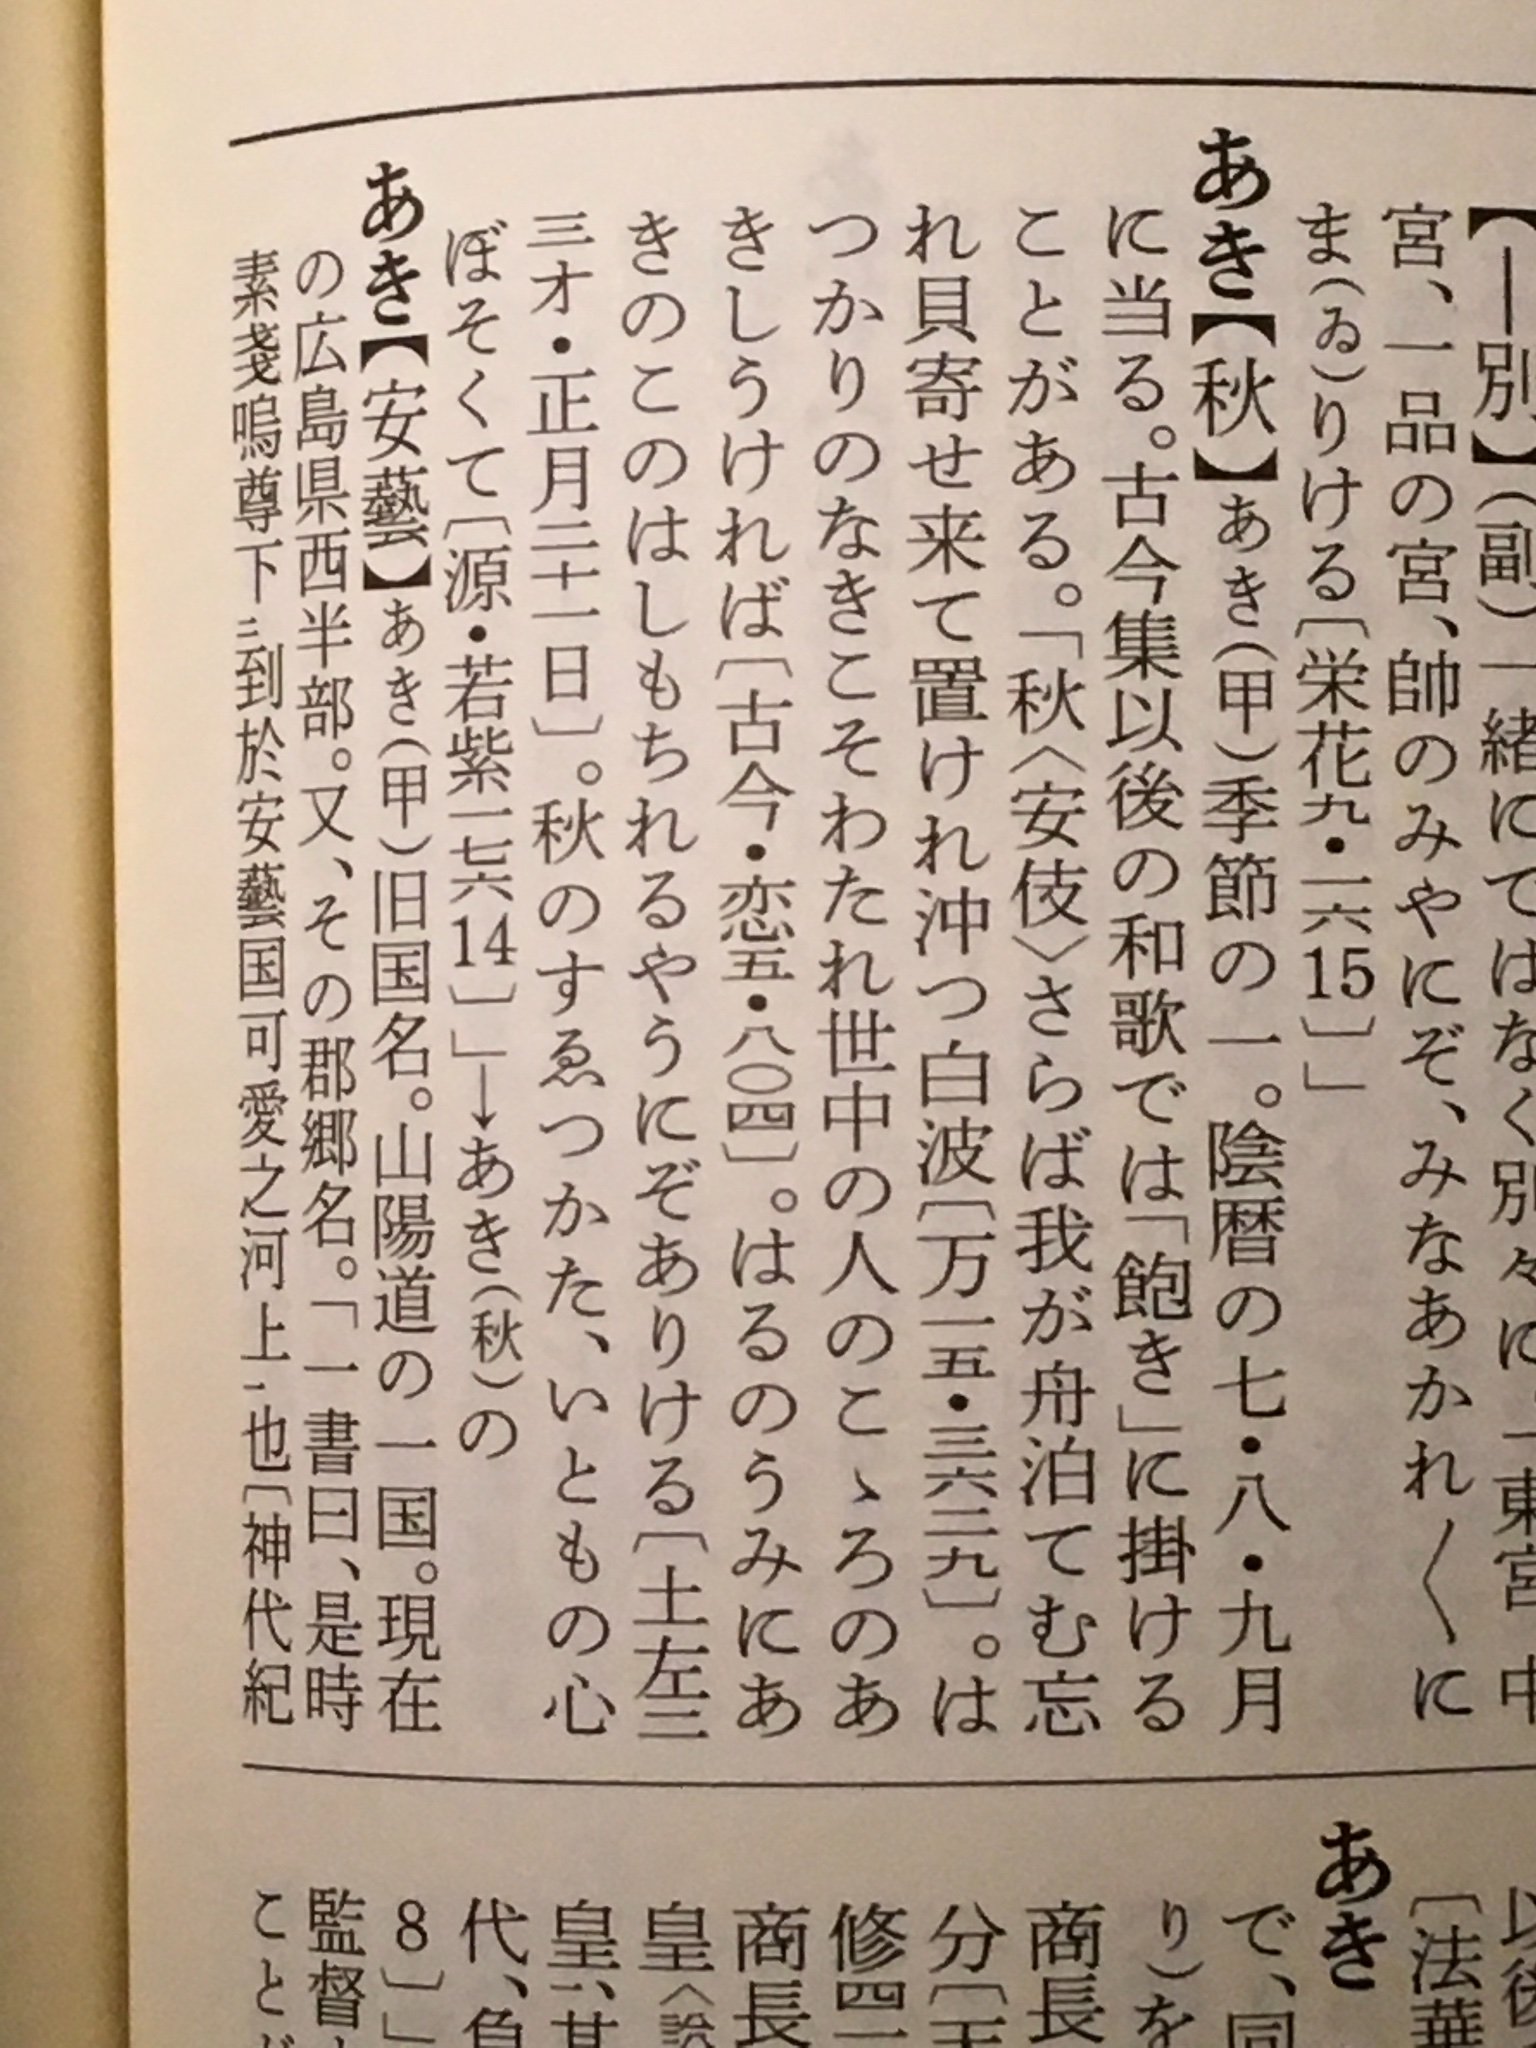 【―別】(副)一緒にではなく別々に「東宮、中
宮、一品の宮、帥のみやにぞ、みなあかれ〱に
ま(ゐ)りける〔栄花九・一六15〕」
あき【秋】あき(甲)季節の一。陰暦の七・八・九月
に当る。古今集以後の和歌では「飽き」に掛ける
ことがある。「秋〈安伎〉さらば我が舟泊てむ忘
れ貝寄せ来て置けれ沖つ白波〔万一五・三六二九〕。は
つかりのなきこそわたれ世中の人のこゝろのあ
きしうければ〔古今・恋五・八〇四〕。はるのうみにあ
きのこのはしもちれるやうにぞありける〔土左三
三オ・正月二十一日〕。秋のすゑつかた、いともの心
ぼそくて〔源・若紫一七六14〕」→あき(秋)の
あき【安藝】あき(甲)旧国名。山陽道の一国。現在
の広島県西半部。又、その郡郷名。「一書曰、是時
素戔嗚尊下二到於安藝国可愛之河上一也〔神代紀
以後
〔法華
あき
で、同
り)を
商長
分〔天
修四一
商長
皇〈
皇、其
代、負
8〕」
監督
こと